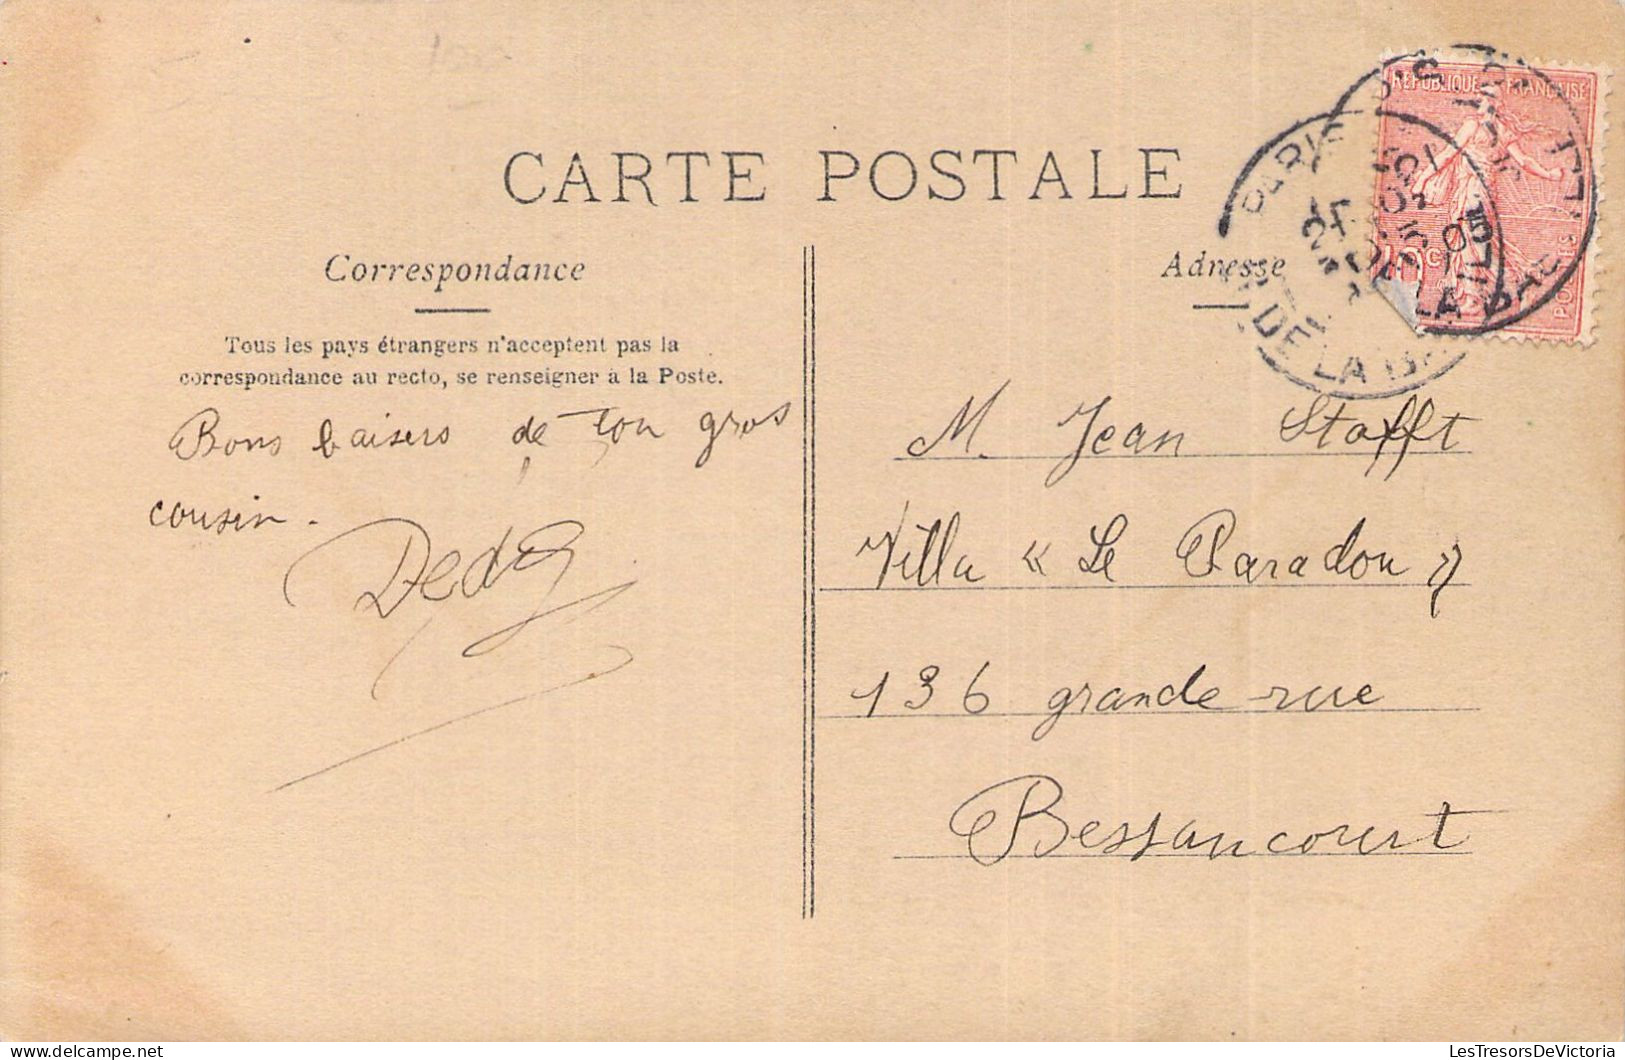 CARTE POSTALE
Correspondance
Tous les pays étrangers n'acceptent pas la
correspondance au recto, se renseigner à la Poste.
Bons baisers de ton gros
cousin.
Adresse
REPUBLIQUE FRANÇAISE
PARIS
DE LA
M. Jean Stofft
Villa « Le Paradou »
136 grande rue
Bessancourt
LesTresorsDeVictoria